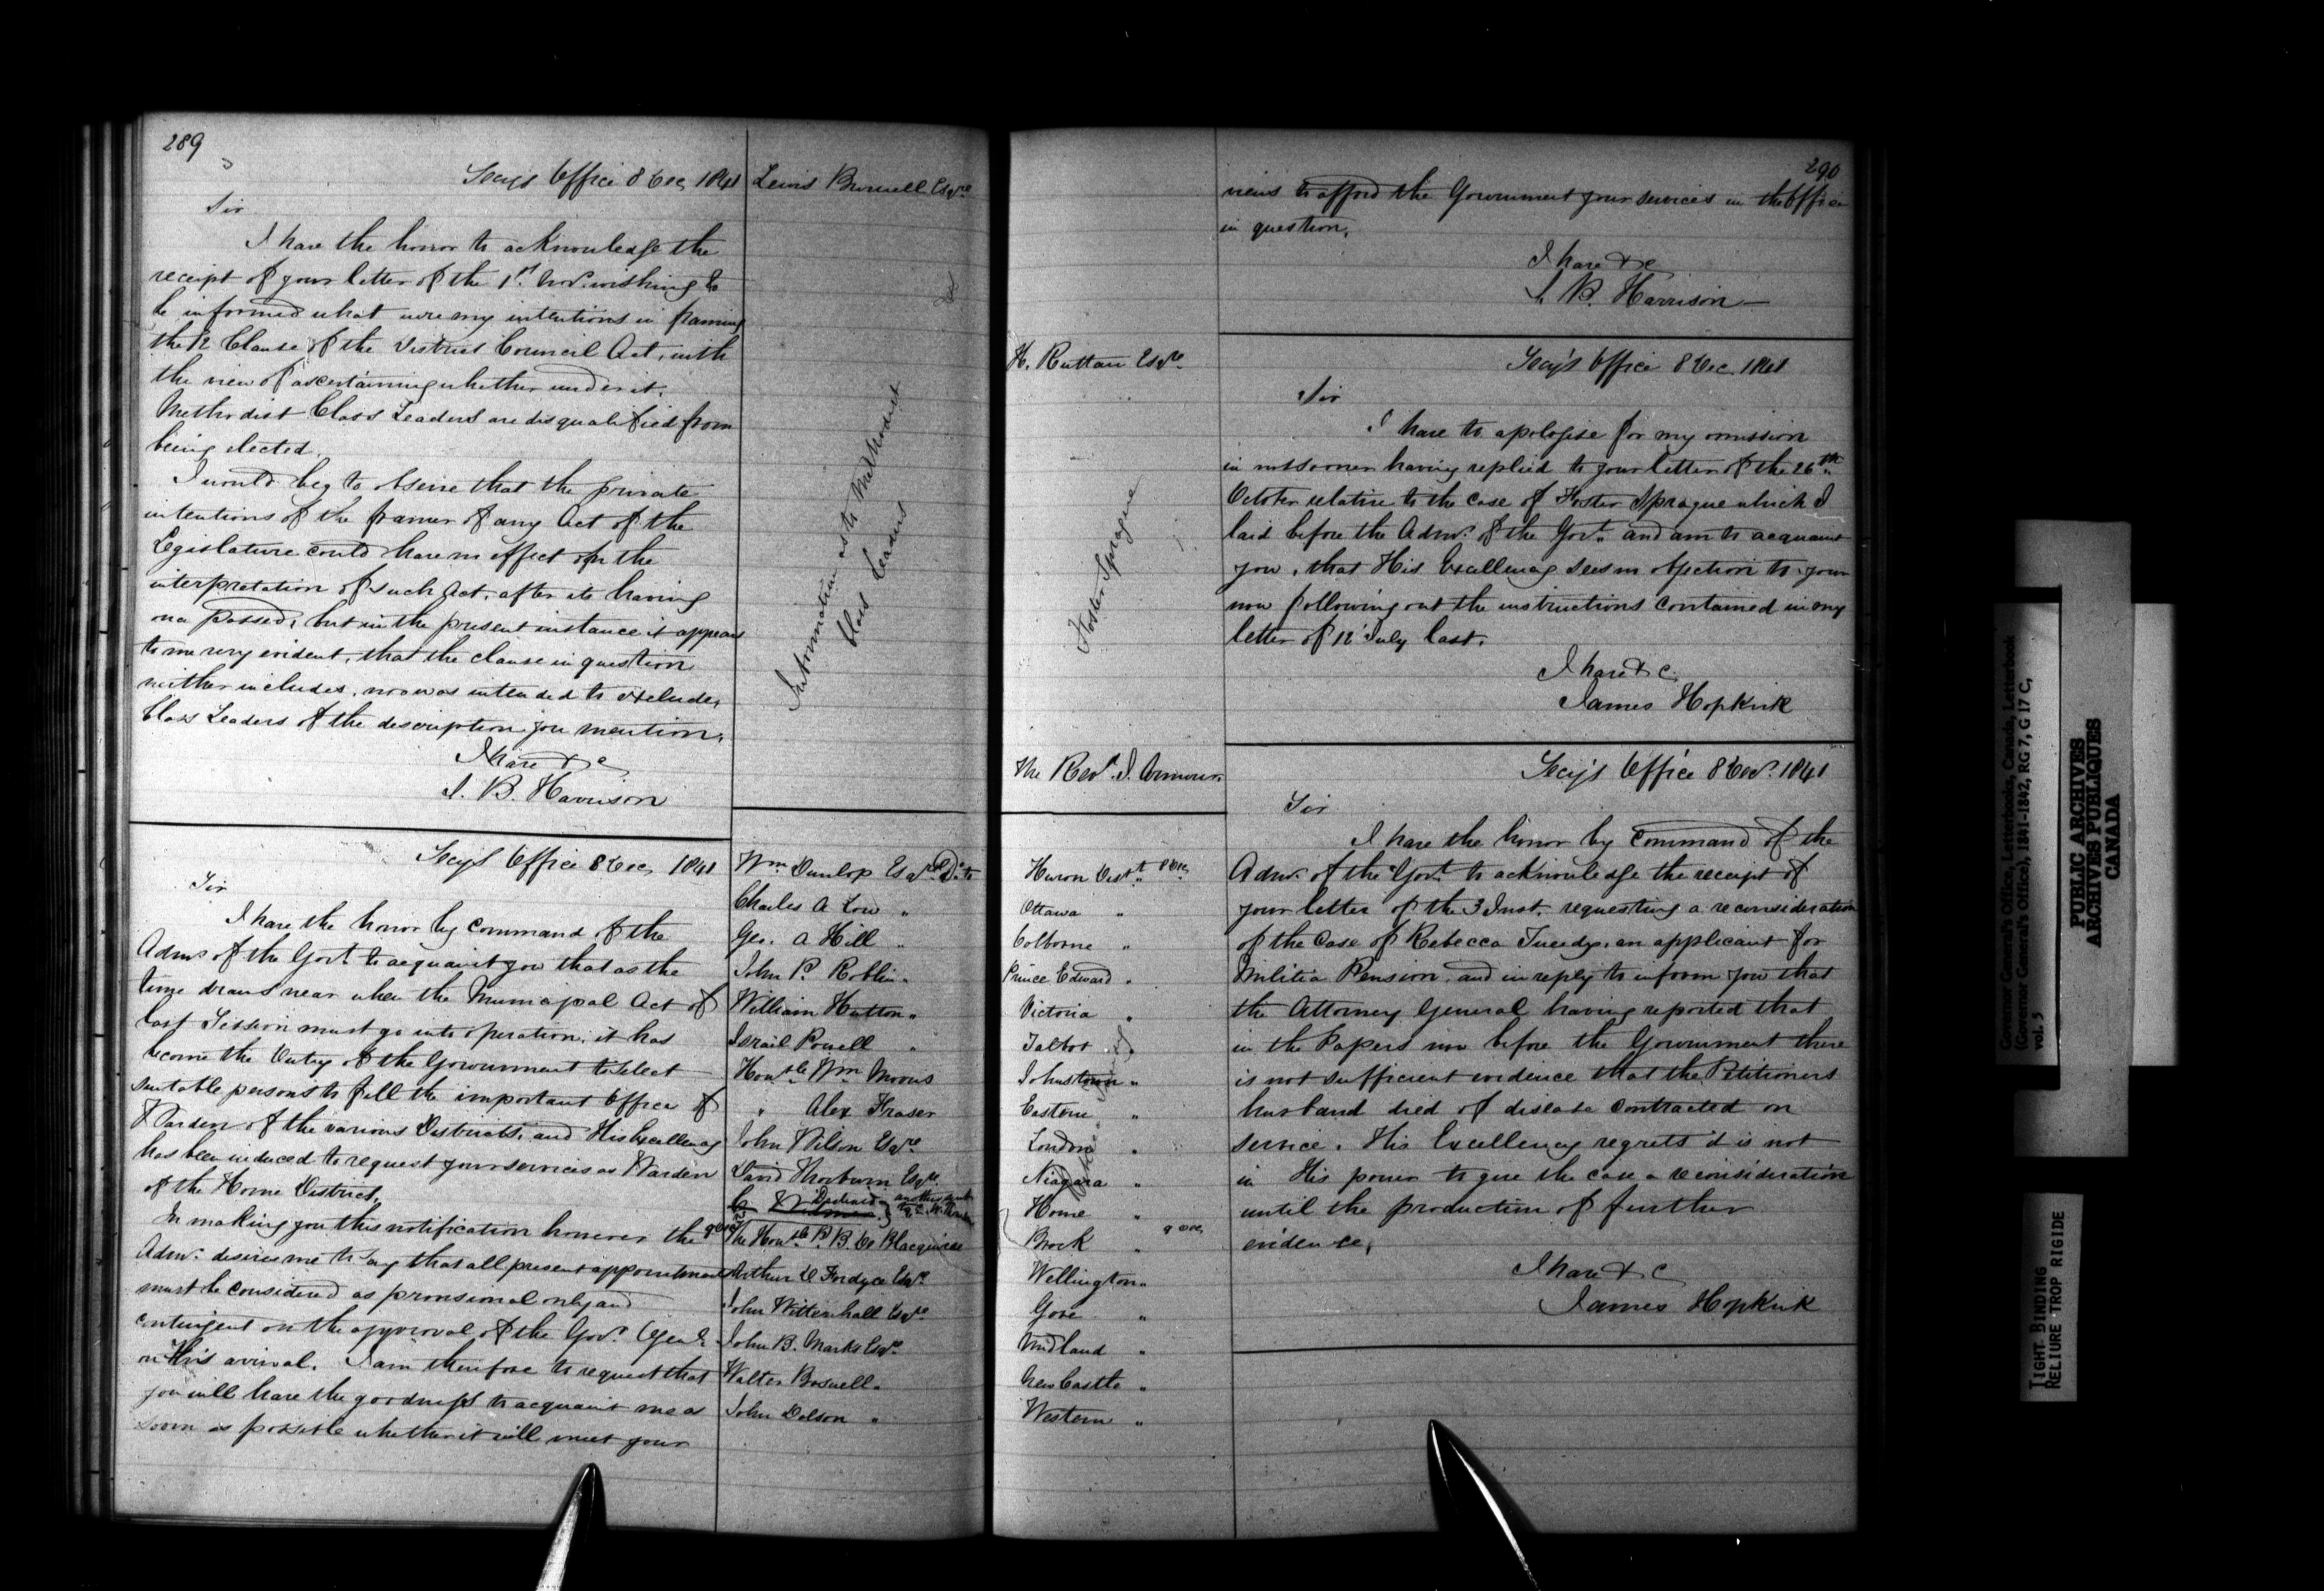 289
Secy's Office 8 Dec 1841
Lewis Burwell Esqre
Sir
I have the honor to acknowledge the
receipt of your letter of the 1st Nov. wishing to
be informed what were my intentions in framing
the 12 Clause of the District Council Act, with
the view of ascertaining whether under it,
Methodist Class Leaders are disqualified from
being elected.
I would beg to observe that the private
intentions of the framer of any Act of the
Legislature could have no effect on the
interpretation of such Act, after its having
once passed, but in the present instance it appears
to me very evident, that the clause in question
neither includes, nor was intended to exclude,
Class Leaders of the description you mention.
I have &c
S. B. Harrison
Information as to Methodist
Class Leaders
Secy's Office 8 Dec 1841
Sir
I have the honor by Command of the
Admr of the Govt to acquaint you that as the
time draws near when the Municipal Act of
last Session must go into operation, it has
become the Duty of the Government to select
suitable persons to fill the important Office of
Warden of the various Districts, and His Excellency
has been induced to request your services as Warden
of the Home District.
In making you this notification however the
Admr. desires me to say that all present appointments
must be considered as provisional only and
contingent on the approval of the Govr Genl
on His arrival. I am therefore to request that
you will have the goodness to acquaint me as
soon as possible whether it will meet your
Wm Dunlop Esqre
Charles A Low "
Geo. A Hill "
John P. Roblin "
William Hutton "
Israil Powell "
Honble Wm Morris
" Alex Fraser
John Wilson Esqre
David Thorburn Esqre.
Declined
The Honble P. B. De Blacquiere
Arthur D Fordyce Esqre
John Wittenhall Esqre
John B. Marks Esqre
Walter Boswell "
John Dolson "
290
views to afford the Government your services in the Office
in question.
I have &c
S. B. Harrison
H. Ruttan Esqre
Secy's Office 8 Dec. 1841
Sir
I have to apologise for my omission
in not sooner having replied to your letter of the 26th.
October relative to the case of Foster Sprague which I
laid before the Admr. of the Govt. and am to acquaint
you, that His Excellency sees no objection to your
now following out the instructions contained in my
letter of 12 July last.
I have &c
James Hopkirk
Foster Sprague
The Revd. S. Armour
Secy's Office 8 Decr. 1841
Sir
I have the honor by Command of the
Admr. of the Govt. to acknowledge the receipt of
your letter of the 3 Inst. requesting a reconsideration
of the Case of Rebecca Tweedy, an applicant for
Militia Pension, and in reply to inform you that
the Attorney General having reported that
in the Papers now before the Government there
is not sufficient evidence that the Petitioners
husband died of disease contracted on
service. His Excellency regrets it is not
in His power to give the case a reconsideration
until the production of further
evidence.
I have &c
James Hopkirk
Huron Distt 8 Dec
Ottawa "
Colborne "
Prince Edward "
Victoria "
Talbot "
Johnstown "
Eastern "
London "
Niagara "
Home "
Brock " 9 Dec
Wellington "
Gore "
Midland "
New Castle "
Western "
Governor General's Office, Letterbooks, Canada, Letterbook
(Governor General's Office), 1841-1842, RG 7, G 17 C,
vol. 5
PUBLIC ARCHIVES
ARCHIVES PUBLIQUES
CANADA
TIGHT BINDING
RELIURE TROP RIGIDE